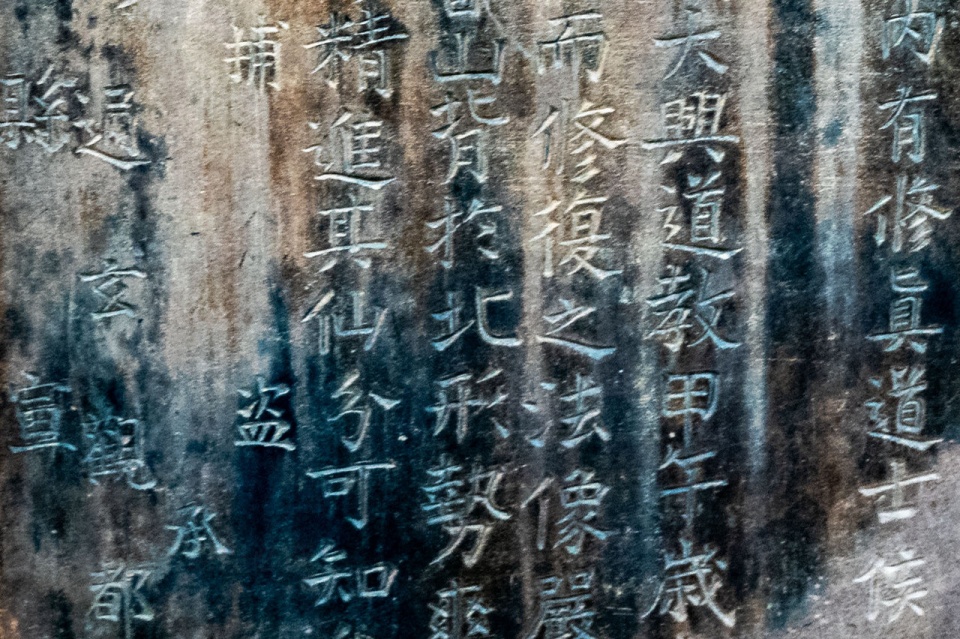 內有修眞道士侯
夫興道教甲午歲
而修復之法像嚴
山背於北形勢
精進眞仙分可知
捕盜
承
過玄觀都
縣宣